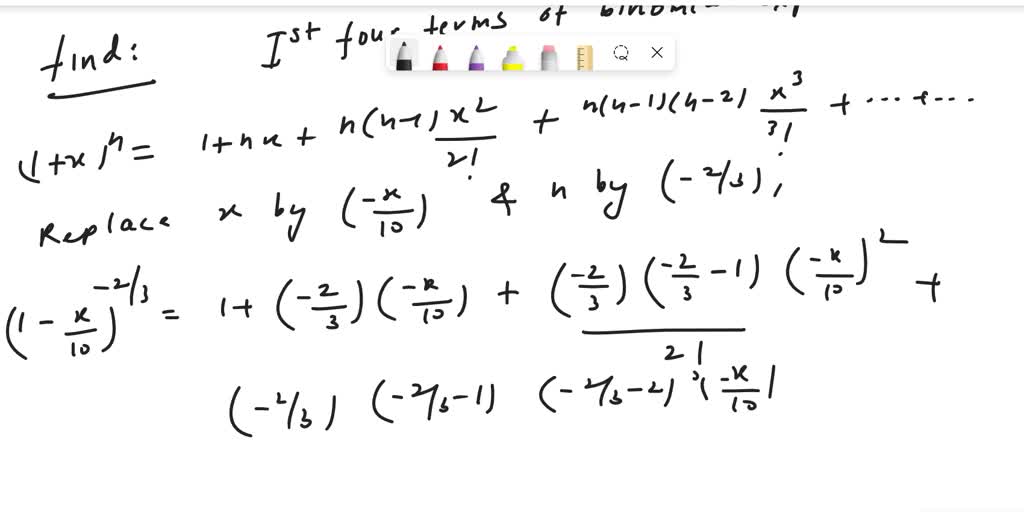 find: Ist four terms of
(1+x)^n = 1+nx + n(n-1) x^2/2! + n(n-1)(n-2) x^3/3! + ... + ...
Replace x by (-x/10) & n by (-2/3);
(1 - x/10)^-2/3 = 1+ (-2/3) (-x/10) + (-2/3) (-2/3 - 1) (-x/10)^2 / 2! +
(-2/3) (-2/3-1) (-2/3-2) (-x/10)